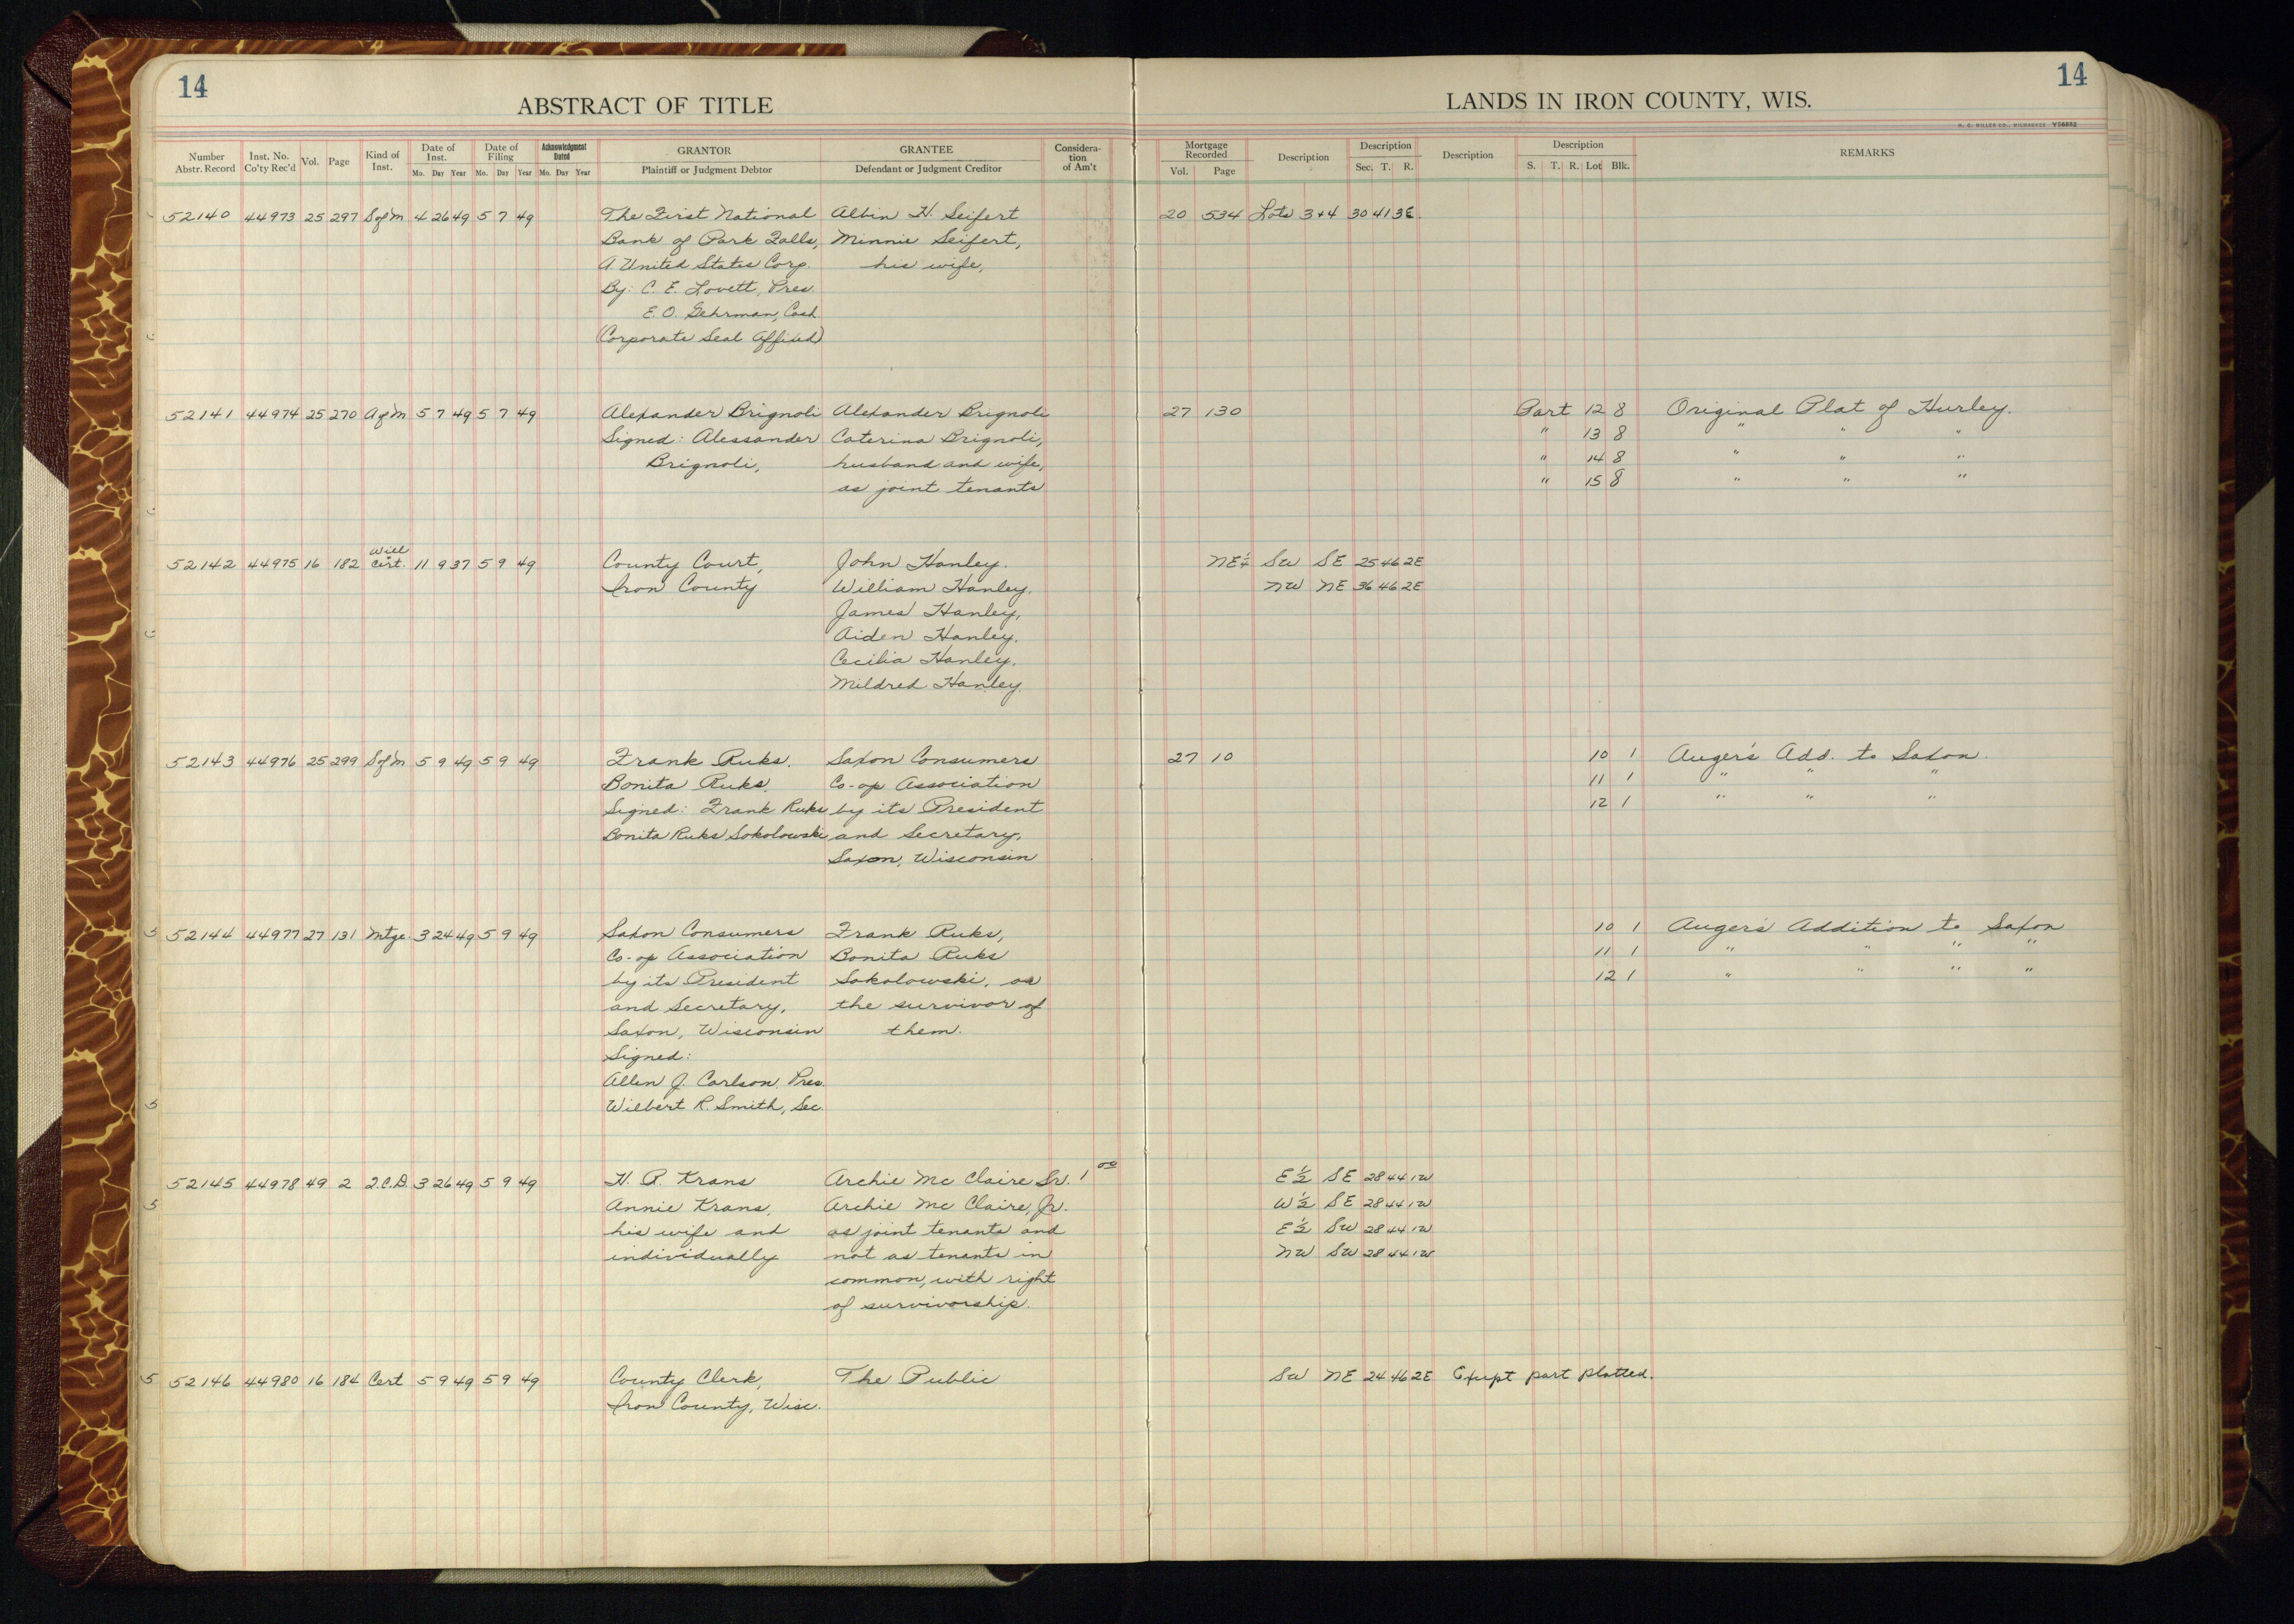 14
14
ABSTRACT OF TITLE
LANDS IN IRON COUNTY, WIS.
H. C. MILLER CO., MILWAUKEE
Number Abstr. Record | Inst. No. Co'ty Rec'd | Vol. | Page | Kind of Inst. | Date of Inst. Mo. Day Year | Date of Filing Mo. Day Year | Acknowledgment Dated Mo. Day Year | GRANTOR Plaintiff or Judgment Debtor | GRANTEE Defendant or Judgment Creditor | Considera-tion of Am't | Mortgage Recorded Vol. Page | Description | Description Sec. T. R. | Description | Description S. T. R. Lot Blk. | REMARKS
52140 44973 25 297 S of M 4 26 49 5 7 49 The First National Albin H. Seifert 20 534 Lots 3+4 30 41 3E
Bank of Park Falls, Minnie Seifert,
A United States Corp. his wife,
By: C. E. Lovett, Pres.
E. O. Gehrman, Cash
(Corporate Seal Affixed)
52141 44974 25 270 A of M 5 7 49 5 7 49 Alexander Brignoli Alexander Brignoli 27 130 Part 12 8 Original Plat of Hurley.
Signed: Alessander Caterina Brignoli, " 13 8 " " "
Brignoli, husband and wife, " 14 8 " " "
as joint tenants " 15 8 " " "
Will
52142 44975 16 182 Cert. 11 9 37 5 9 49 County Court, John Hanley. NE¼ SW SE 25 46 2E
Iron County William Hanley. NW NE 36 46 2E
James Hanley,
Aiden Hanley.
Cecilia Hanley.
Mildred Hanley.
52143 44976 25 299 S of M 5 9 49 5 9 49 Frank Ruks. Saxon Consumers 27 10 10 1 Auger's Add. to Saxon.
Bonita Ruks. Co-op Association 11 1 " " "
Signed: Frank Ruks by its President 12 1 " " "
Bonita Ruks Sokolowski and Secretary,
Saxon, Wisconsin
5 52144 44977 27 131 Mtge. 3 24 49 5 9 49 Saxon Consumers Frank Ruks, 10 1 Auger's Addition to Saxon
Co-op Association Bonita Ruks 11 1 " " " "
by its President Sokolowski, or 12 1 " " " "
and Secretary, the survivor of
Saxon, Wisconsin them.
Signed:
Allen J. Carlson, Pres.
5 Wilbert R. Smith, Sec.
52145 44978 49 2 Q.C.D. 3 26 49 5 9 49 H. A. Krans Archie Mc Claire Sr. 1 00 E½ SE 28 44 1W
5 Annie Krans, Archie Mc Claire, Jr. W½ SE 28 44 1W
his wife and as joint tenants and E½ SW 28 44 1W
individually not as tenants in NW SW 28 44 1W
common, with right
of survivorship.
5 52146 44980 16 184 Cert 5 9 49 5 9 49 County Clerk, The Public SW NE 24 46 2E Exept part platted.
Iron County, Wisc.